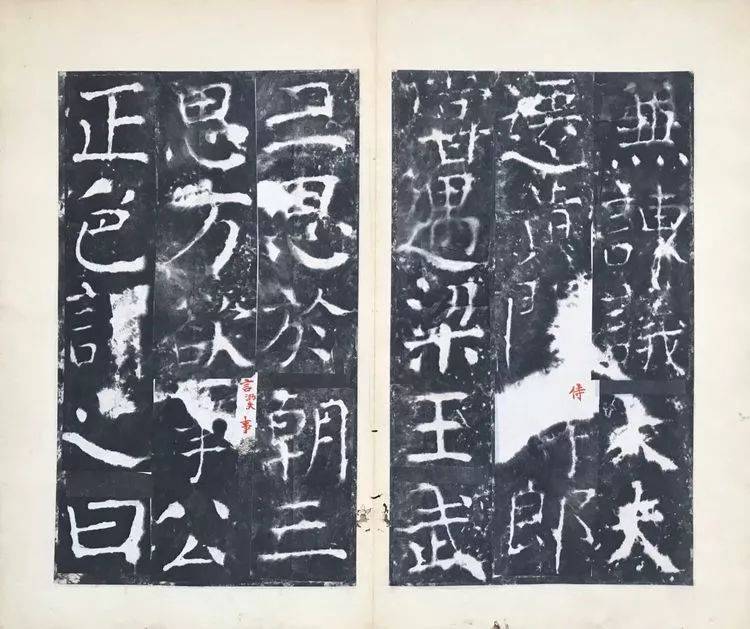 兼諫議大夫
遷黃門侍郎
嘗遇梁王武
三思於朝三
思方欲言事公
正色謂之曰
侍
言
事